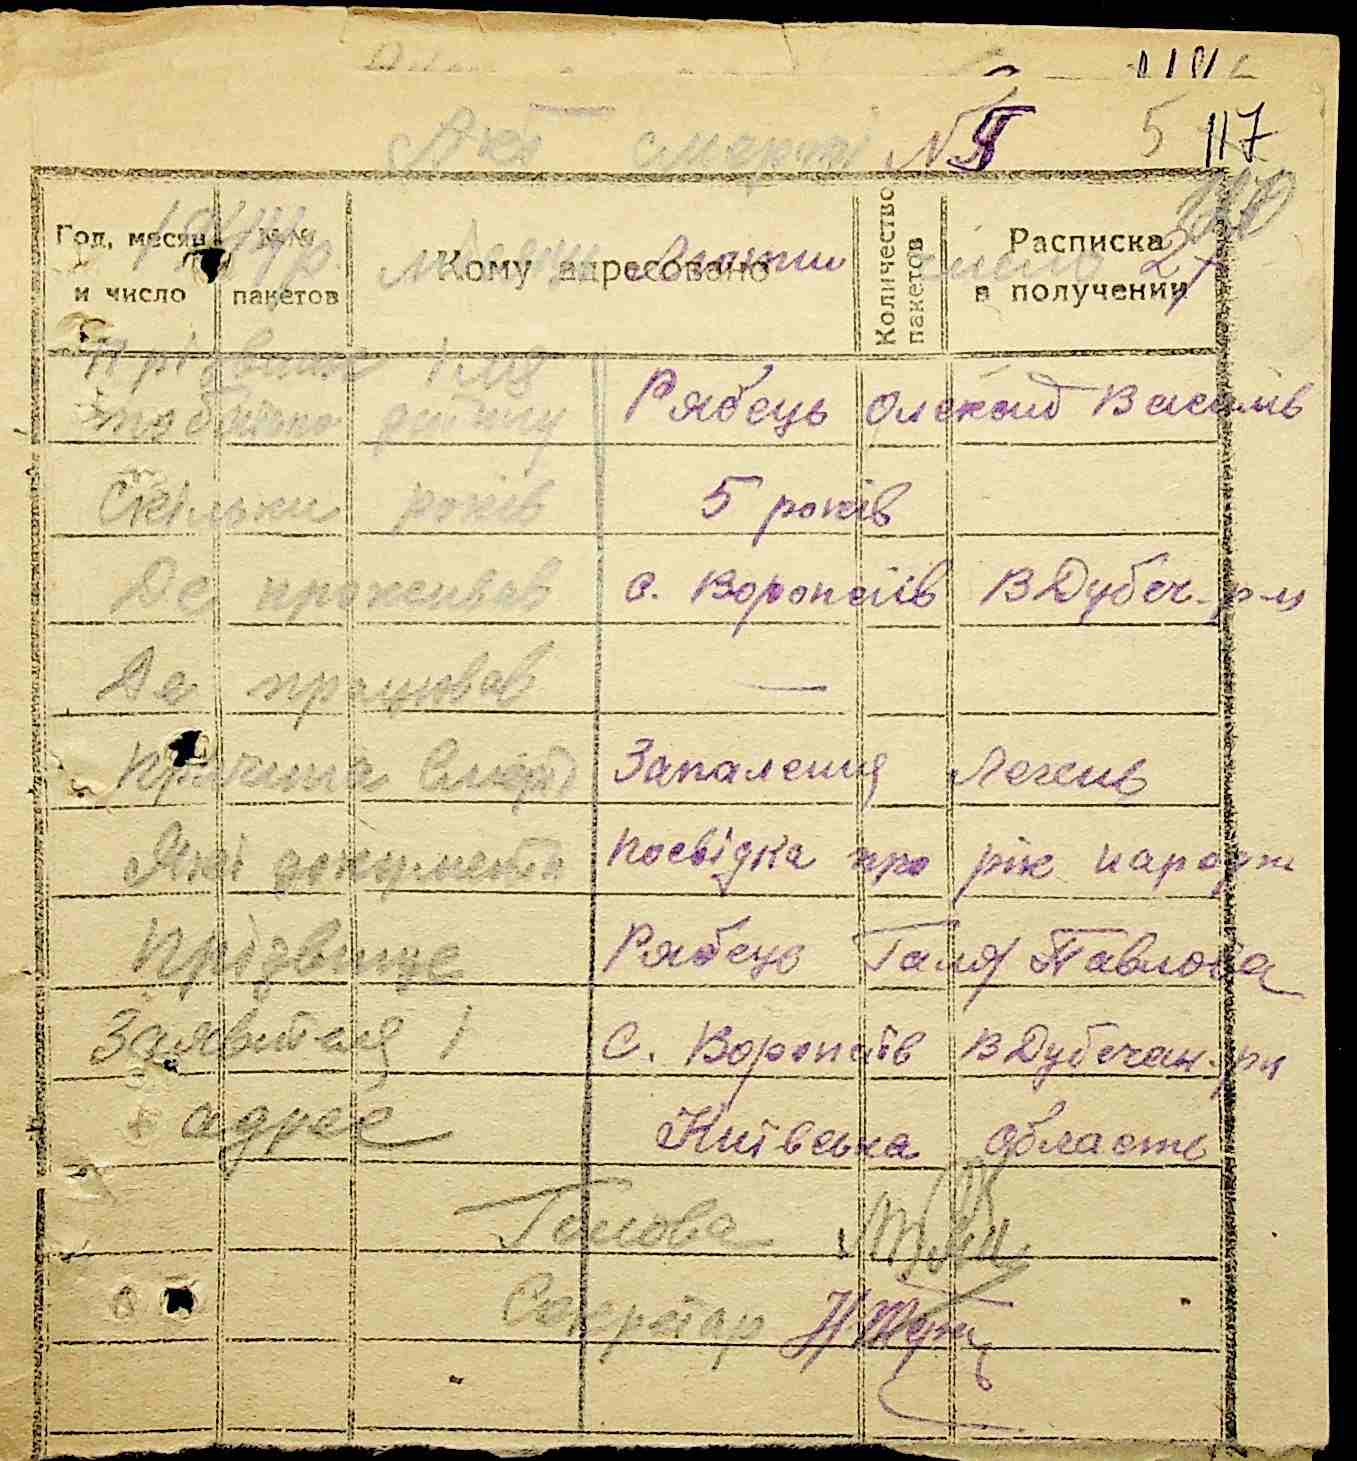 Акт смерті №
5 117
Год, месяц и число
№№ пакетов
Кому адресовано
Количество пакетов
Расписка в получении
1944 р місяць число 27
Прізвище імя
побатькові Рябець Олексій Василів
Скільки років 5 років
Де проживав с. Воропаїв ВДубеч. р-н
Де працював —
Причина смерті Запалення легень
Які документи посвідка про рік народж
Прізвище Рябець Галя Павловна
Заявителя і с. Воропаїв ВДубечан. рн
адрес Київська область
Голова
Секретар